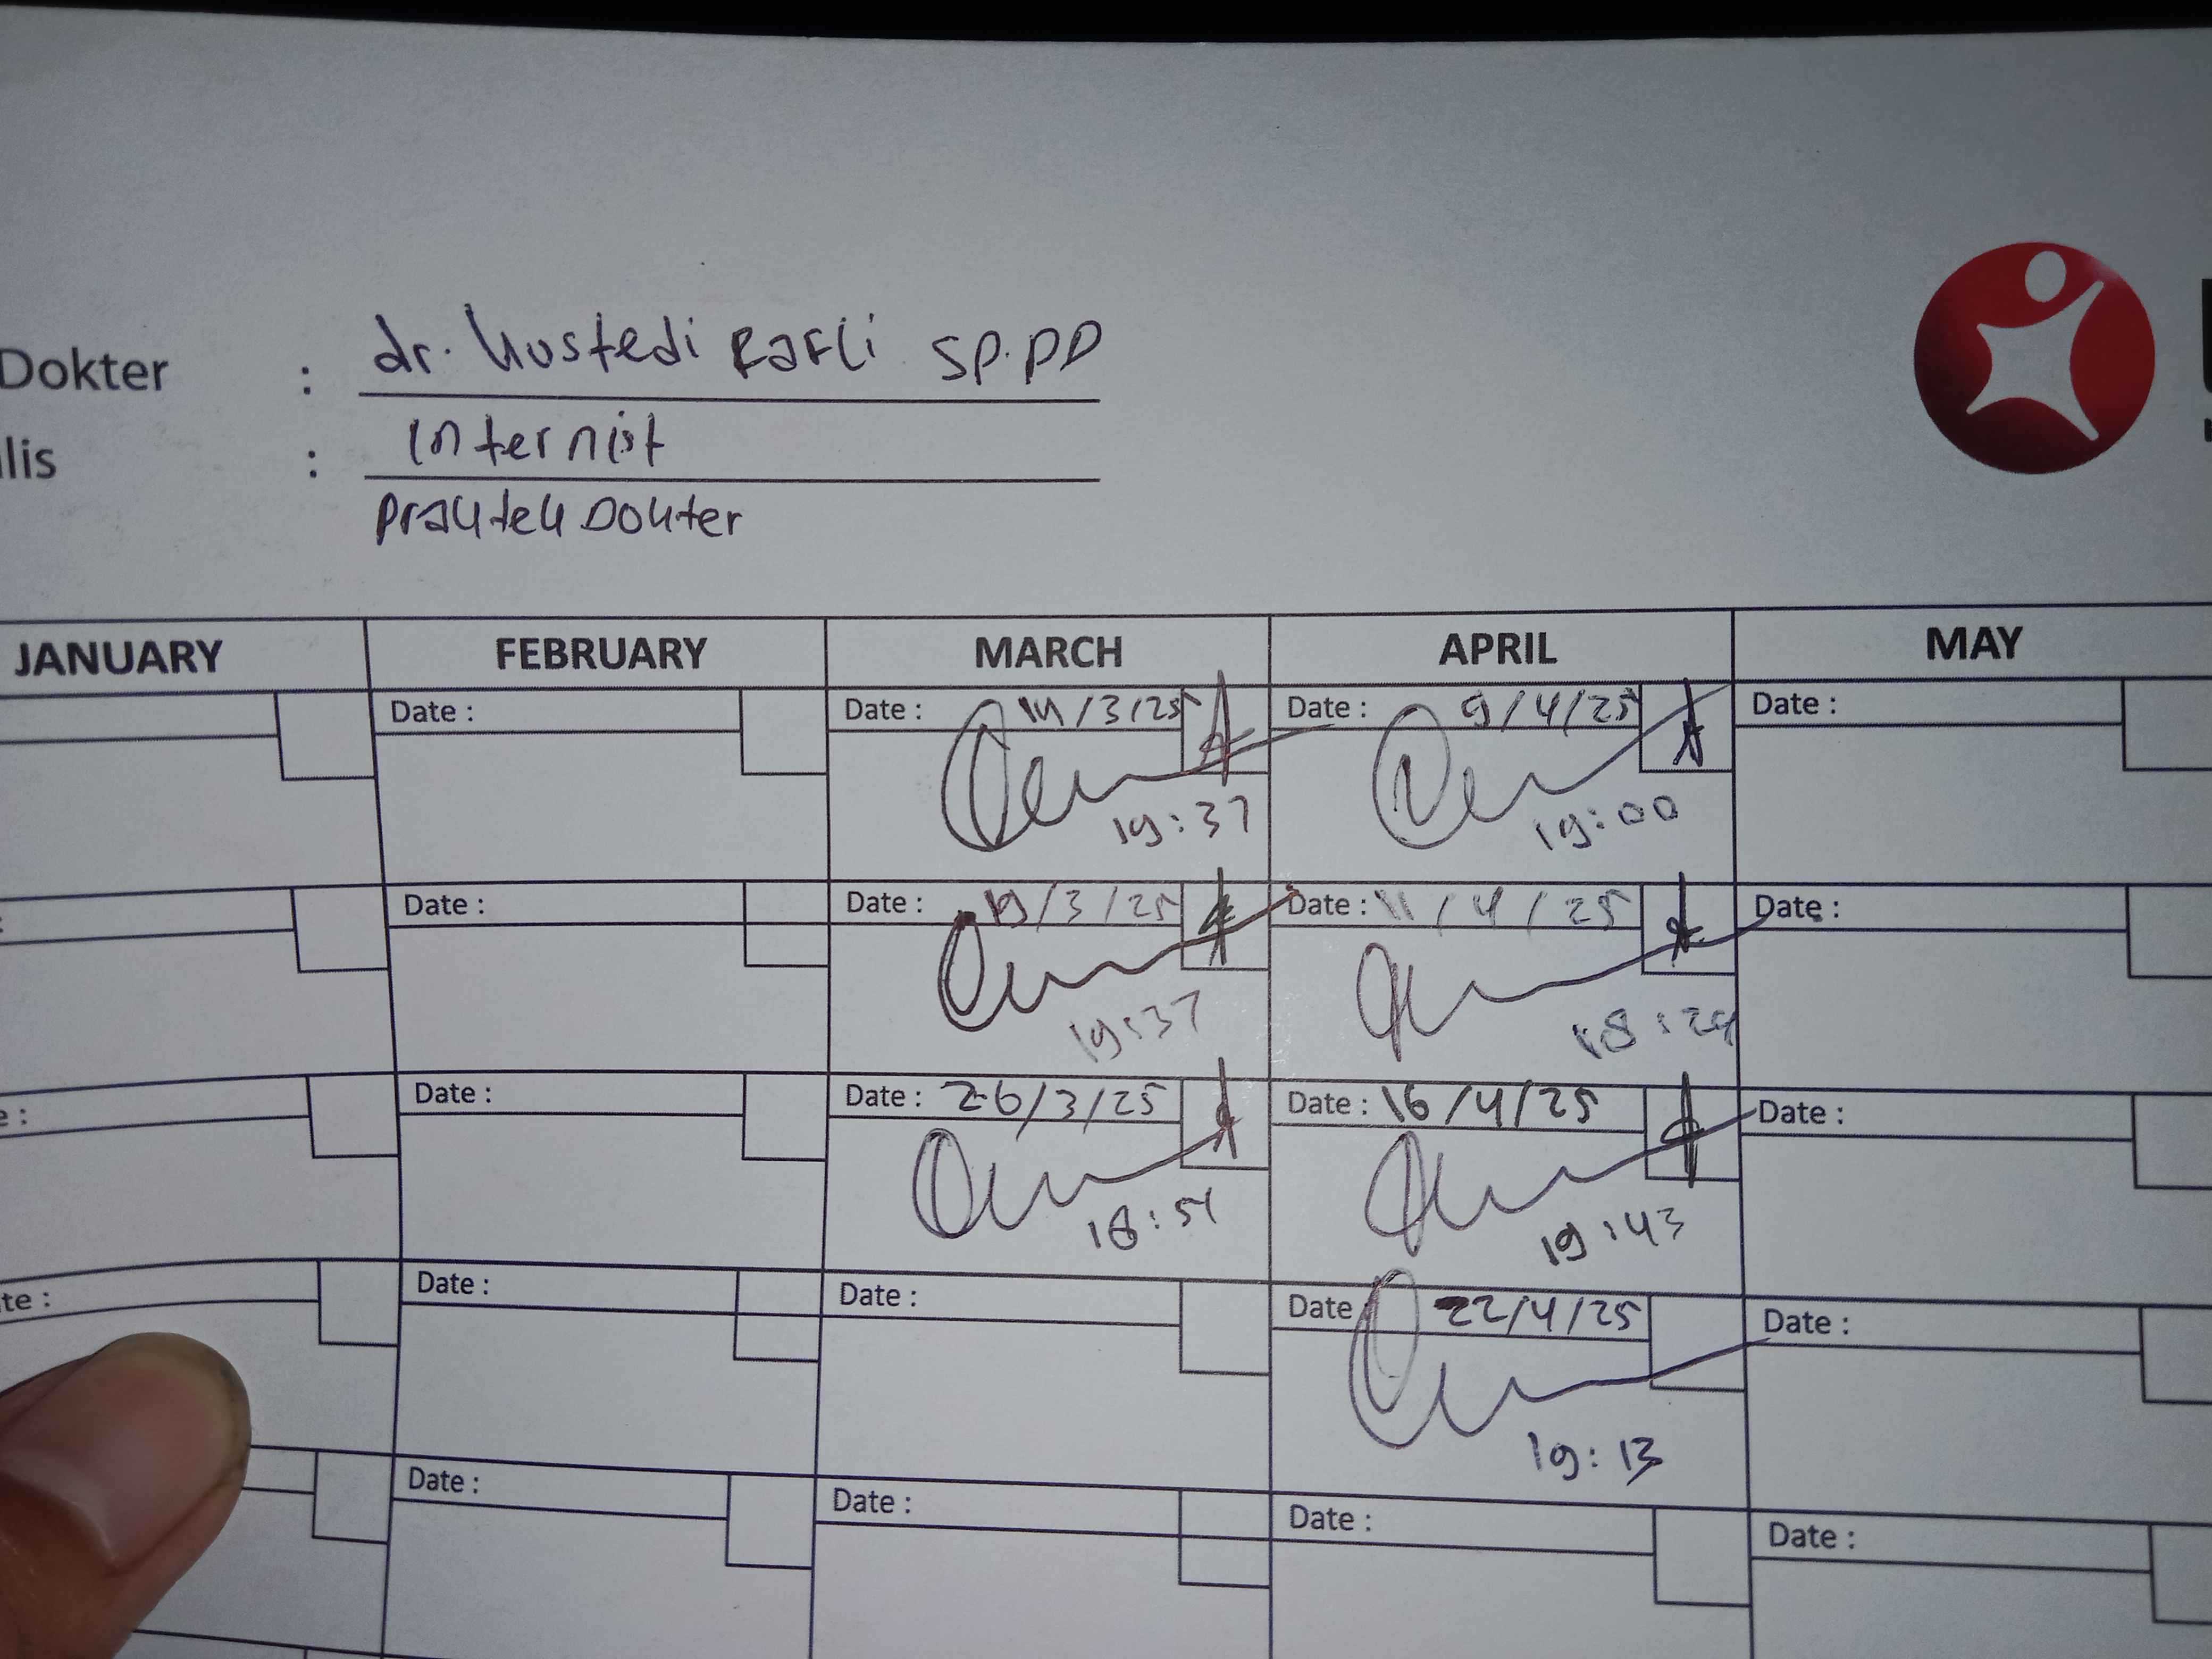 Dokter : dr. Kustedi Rafli SP.PD
lis : Internist
Praktek Dokter
JANUARY FEBRUARY MARCH APRIL MAY
Date : Date : Date : 9/4/25 Date :
19:37 19:00
Date : Date : 19/3/25 Date : 11/4/25 Date :
19:37
Date : Date : 26/3/25 Date : 16/4/25 Date :
18:51 19:43
te : Date : Date : Date 22/4/25 Date :
19:13
Date : Date : Date : Date :